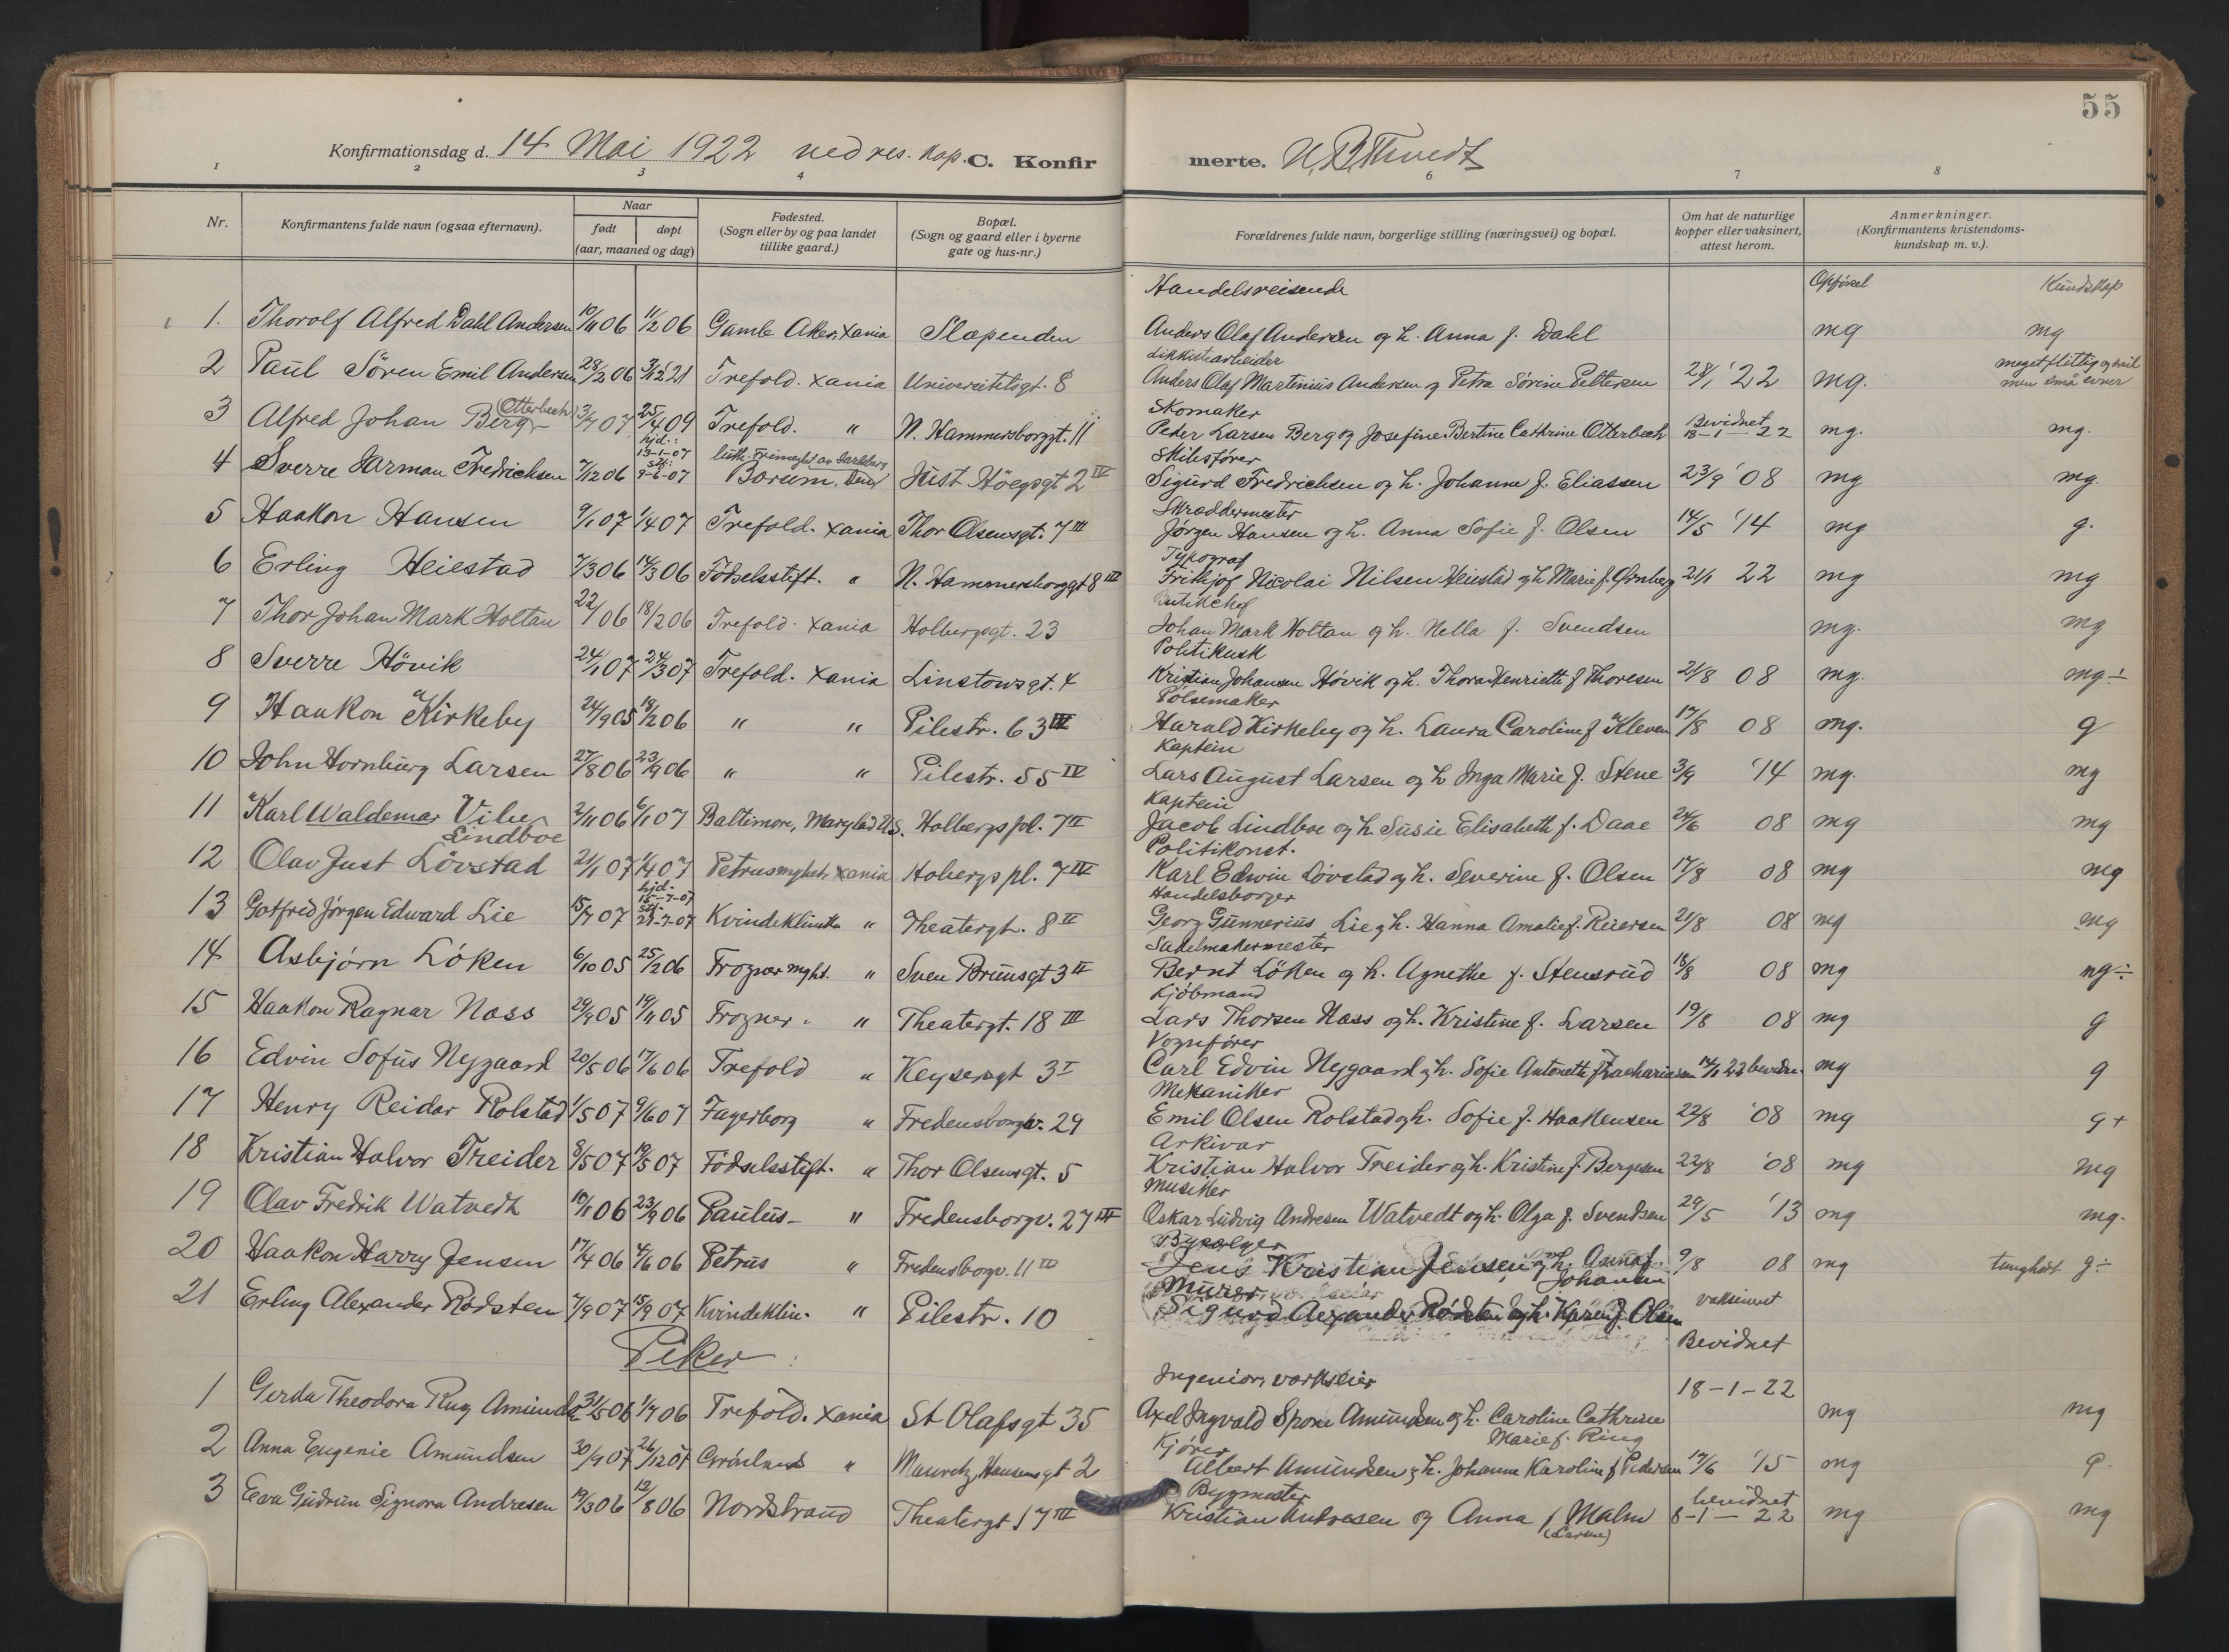 55
Konfirmationsdag d. 14 Mai 1922 ved res. kap. C. Konfirmerte.
1 2 3 4 6 7 8
Nr. Konfirmantens fulde navn (ogsaa efternavn). Naar født døpt (aar, maaned og dag) Fødested. (Sogn eller by og paa landet tillike gaard.) Bopæl. (Sogn og gaard eller i byerne gate og hus-nr.) Forældrenes fulde navn, borgerlige stilling (næringsvei) og bopæl. Om hat de naturlige kopper eller vaksinert, attest herom. Anmerkninger. (Konfirmantens kristendoms-kundskap m. v.).
Handelsreisende Opførsel Kundskap
1. Thorolf Alfred Dahl Andersen 10/11 06 11/2 06 Gamle Aker, Xania Slapenden Anders Olaf Andersen og h. Anna f. Dahl mg mg
Likkistearbeider meget flittig og snil
2 Paul Sören Emil Andersen 28/2 06 21 Trefold. Xania Universitetsgt. 8 Anders Olaf Martinius Andersen og Petra Sørine Pettersen 28/1 '22 mg. men små evner
Skomaker
3 Alfred Johan Berg (Otterbech) 3/7 07 25/4 09 Trefold. " N. Hammersborggt. 11 Peder Larsen Berg og Josefine Bertine Cathrine Otterbech Bevidnet 18-1-22 mg. mg.
hjd.: 13-1-07 Skibsfører
4 Sverre Jarman Fredrichsen 7/12 06 9-6-07 Borum, Just Höegsgt 2 IV Sigurd Fredrichsen og h. Johanne f. Eliassen 23/9 '08 mg mg
Skræddermester
5 Haakon Hansen 9/1 07 1/4 07 Trefold. Xania Thor Olsensgt. 7 III Jørgen Hansen og h. Anna Sofie f. Olsen 14/5 '14 mg g.
Typograf
6 Erling Heiestad 7/3 06 14/3 06 Födselsstift. " N. Hammersborggt 8 III Frithjof Nicolai Nilsen Heiestad og h. Marie f. 21/1 22 mg mg
Butikchef
7 Thor Johan Mark Holtan 22/1 06 18/2 06 Trefold. Xania Holbergsgt. 23 Johan Mark Holtan og h. Nella f. Svendsen mg. mg
Politikusk
8 Sverre Hövik 24/1 07 24/3 07 Trefold. Xania Linstowsgt. 4 Kristian Johansen Høvik og h. Thora Henriette f. Thoresen 21/8 08 mg. mg÷
Pølsemaker
9 Haakon Kirkeby 24/9 05 18/2 06 " " Pilestr. 63 III Harald Kirkeby og h. Laura Caroline f. Kleven 17/8 08 mg. g
Kaptein
10 John Hornburg Larsen 27/8 06 23/9 06 " " Pilestr. 55 IV Lars August Larsen og h. Inga Marie f. Stene 3/9 '14 mg. mg
Kaptein
11 Karl Waldemar Vibe Lindboe 2/11 06 6/1 07 Baltimore, U.S. Holbergs pl. 7 II Jacob Lindboe og h. Susie Elisabeth f. Daae 24/6 08 mg mg
Politikonst.
12 Olav Just Lövstad 21/1 07 1/4 07 Petrusmghet, Xania Hobergs pl. 7 IV Karl Edwin Lövstad og h. Severine f. Olsen 17/8 08 mg mg
hjd. 15-7-07 Handelsborger
13 Gotfred Jörgen Edward Lie 15/7 07 Kvindeklinikken " Theatergt. 8 II Georg Gunnerius Lie og h. Hanna Amalie f. Reiersen 21/8 08 mg mg
Sadelmakermester
14 Asbjørn Löken 6/10 05 25/2 06 Frogner mght. " Sven Brunsgt 3 II Bernt Löken og h. Agnethe f. Stensrud 18/8 08 mg mg÷
Kjöbmand
15 Haakon Ragnar Næss 29/9 05 19/11 05 Frogner. " Theatergt. 18 III Lars Thorsen Næss og h. Kristine f. Larsen 19/8 08 mg g
Vognfører
16 Edvin Sofus Nygaard 20/5 06 17/6 06 Trefold " Keysersgt 3 I Carl Edvin Nygaard og h. Sofie Antonette f. Zachariassen 14/1 22 mg g
Mekaniker
17 Henry Reidar Rolstad 1/5 07 9/6 07 Fagerborg " Fredensborgv. 29 Emil Olsen Rolstad og h. Sofie f. Haakensen 22/8 '08 mg g+
Arkivar
18 Kristian Halvor Treider 8/5 07 19/5 07 Födselsstift. " Thor Olsensgt. 5 Kristian Halvor Treider og h. Kristine f. Bergesen 22/8 '08 mg mg
Musiker
19 Olav Fredrik Watvedt 10/1 06 23/9 06 Paulus- " Fredensborgv. 27 III Oskar Ludvig Andresen Watvedt og h. Olga f. Svendsen 29/5 '13 mg mg.
20 Haakon Harry Jensen 17/4 06 4/6 06 Petrus " Fredensborgv. 11 III Jens Kristian Jensen og h. Anna f. Johansen 9/8 08 mg tunghørt g÷
Murer
21 Erling Alexander Rödsten 7/9 07 15/9 07 Kvindeklin. " Pilestr. 10 Sigurd Alexander Rödsten og h. Karen f. Olsen vaksineret
Piker Bevidnet
Ingeniør, 18-1-22
1 Gerda Theodora Ring Amundsen 31/5 06 1/7 06 Trefold. Xania St Olafsgt 35 Axel Ingvald Amundsen og h. Caroline Cathrine Marie f. Ring mg mg
Kjører
2 Anna Eugenie Amundsen 30/9 07 26/12 07 Grønland " Mauretz Hansensgt 2 Albert Amundsen og h. Johanne Karoline f. Pedersen 17/6 '15 mg g.
Bygmester bevidnet
3 Eva Gudrun Signora Andresen 19/3 06 12/8 06 Nordstrand Theatergt 17 III Kristian Andresen og Anna f. Malm (Larsen) 8-1-22 mg mg